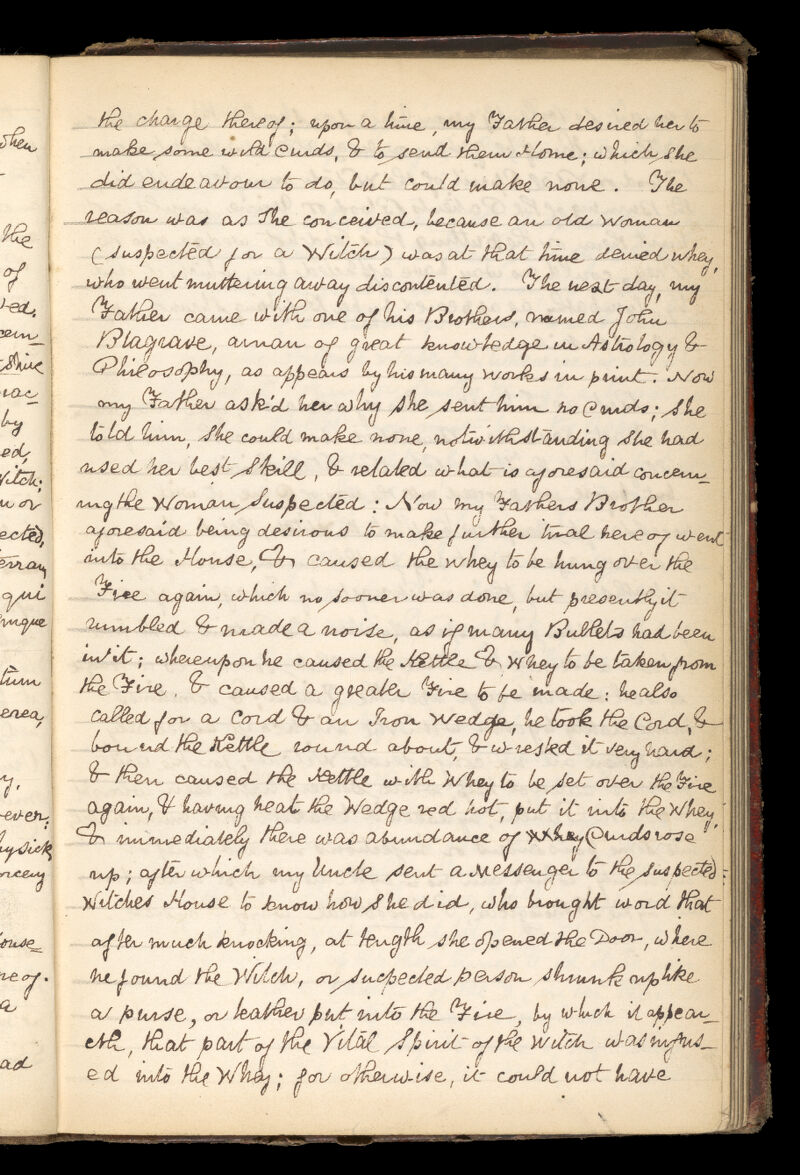 when
the
of
ved.
cern-
Shire
rac-
by
ed,
Witch;
n or
ected),
erram
qui
unque
tum
erea,
y.
ever;
hysick
orcery
ouse=
reof.
a
ad
the charge thereof; upon a time, my Father desired her to
make some wild Curds, & to send them Home; which She
did endeavour to do, but could make none. The
reason was as She conceived, because an old Woman
(suspected for a Witch) was at that time denied whey,
who went muttering away discontented. The next day, my
Father came with one of his Brothers, named John
Blagrave, a man of great knowledge in Astrology &
Philosophy, as appears by his many works in print. Now
my Father ask'd her why she sent him no Curds; She
told him, She could make none, notwithstanding She had
used her best Skill, & related what is aforesaid concern-
ing the Woman Suspected: Now my Fathers Brother
aforesaid being desirous to make further trial hereof went
into the House, & caused the whey to be hung over the
Fire again, which no sooner was done, but presently it
rumbled & made a noise, as if many Bullets had been
in it; whereupon he caused the Kettle & Whey to be taken from
the Fire, & caused a greater Fire to be made: he also
called for a cord & an Iron Wedge, he took the Cord, &
bound the Kettle round about, & wrested it very hard;
& then caused the Kettle with Whey to be set over the Fire
again, & having heat the Wedge red hot, put it into the Whey,
& immediately there was abundance of Whey Curds rose
up; after which my Uncle sent a Messenger to the suspected
Witches House to know how She did, who brought word that
after much knocking, at length she opened the Door, where
he found the Witch, or suspected person shrunk up like
a purse, or leather put into the Fire, by which it appear-
eth, that part of the Vital Spirit of the Witch was infus-
ed into the Whey; for otherwise, it could not have